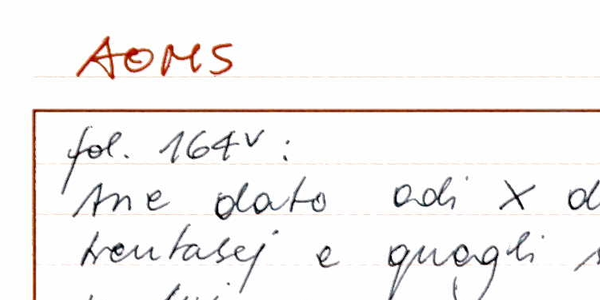 AOMS
fol. 164v :
Ane dato adi X d
trentasej e quagli s